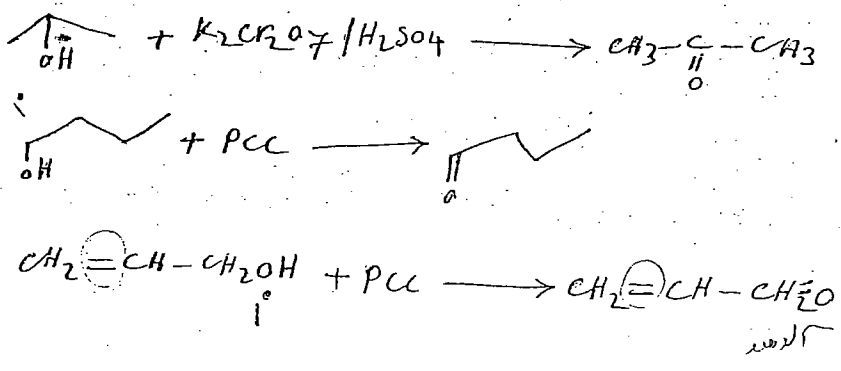 OH + K2Cr2O7 / H2SO4 → CH3-C-CH3
O
1°
OH + PCC → O
CH2=CH-CH2OH + PCC → CH2=CH-CH=O
1°
آلدهید